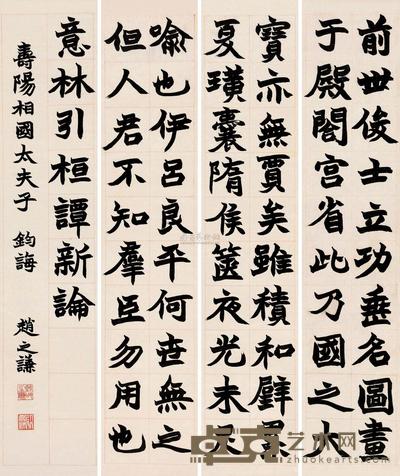 前世俊士立功垂名圖畫
于殿閣宮省此乃國之大
寶亦無賈矣雖積和璧累
夏璜囊隋侯篋夜光未足
喻也伊呂良平何世無之
但人君不知羣臣勿用也
意林引桓譚新論
壽陽相國太夫子 鈞誨 趙之謙
艺术网